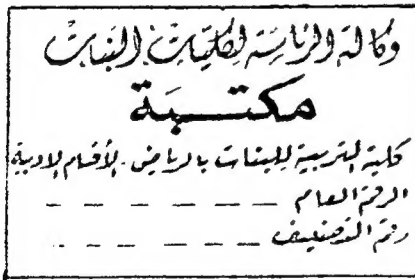 وكالة الرئاسة لكليات البنات
مكتبة
كلية التربية للبنات بالرياض - الأقسام الادبية
الرقم العام _ _ _ _ _ _ _
رقم التصنيف _ _ _ _ _